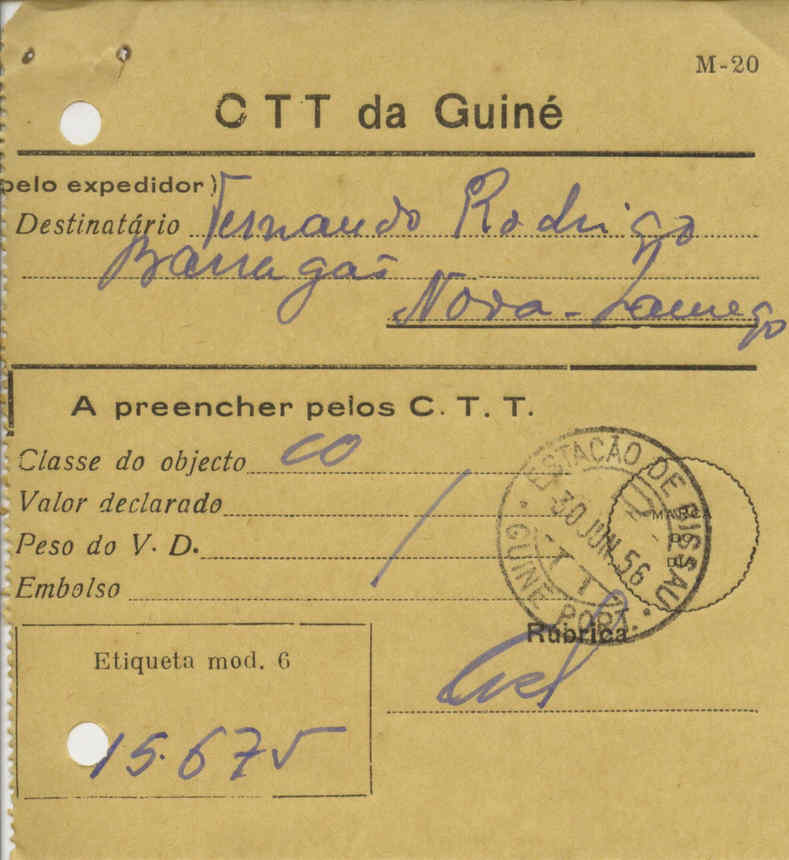 M-20
CTT da Guiné
pelo expedidor)
Destinatário Fernando Rodrigo
Barragas
Nova-Lamego
A preencher pelos C. T. T.
Classe do objecto CO
Valor declarado
Peso do V. D.
Embolso
ESTAÇÃO DE BISSAU
30 JUN. 56
GUINÉ PORT.
MARCA
DO
DIA
Rúbrica
Etiqueta mod. 6
15.675